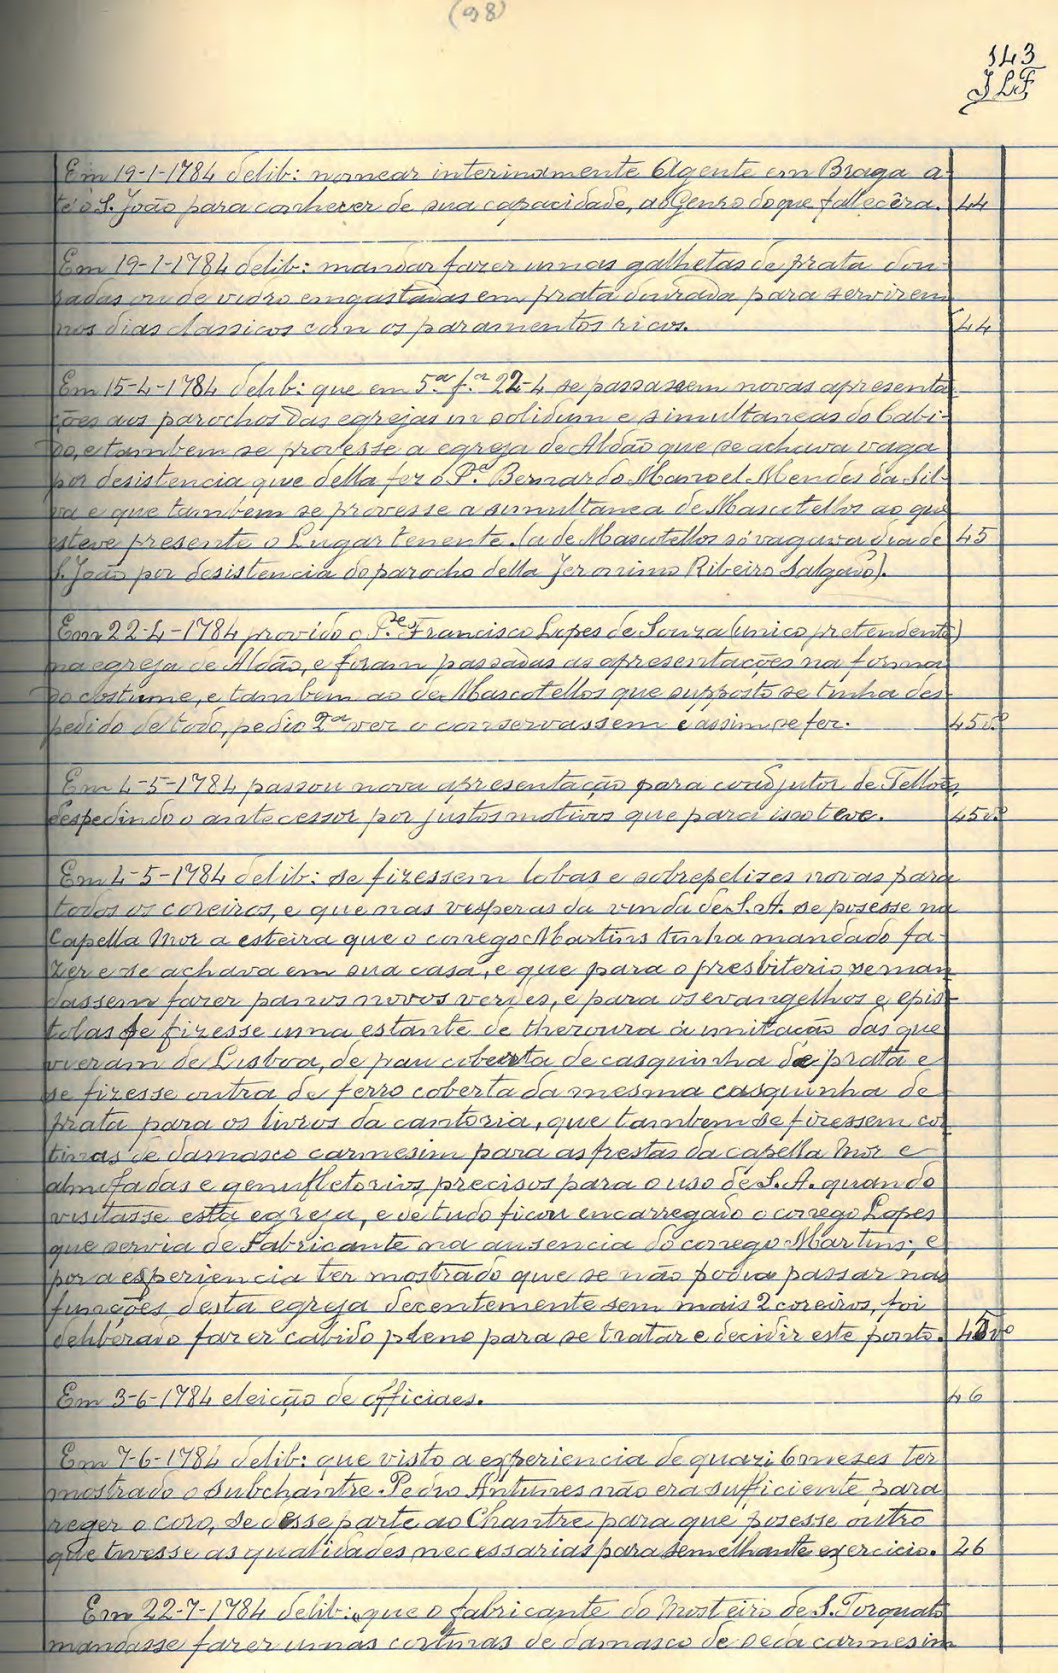 (98)
143
JLF
Em 19-1-1784 delib: nomear interinamente Agente em Braga a-
té o S. João para conhecer de sua capacidade, ao Genro do que fallecêra. 44
Em 19-1-1784 delib: mandar fazer umas galhetas de prata dou-
radas ou de vidro emgastadas em prata dourada para servirem
nos dias classicos com os paramentos ricos. 44
Em 15-4-1784 delib: que em 5.ª f.ª 22-4 se passassem novas apresenta-
ções aos parochos das egrejas in solidum e simultaneas do Cabi-
do, e tambem se provesse a egreja de Aldão que se achava vaga
por desistencia que della fez o P.e Bernardo Manoel Mendes da Sil-
va e que tambem se provesse a simultanea de Mascotellos ao que
esteve presente o Lugar tenente. (a de Mascotellos só vagava dia de 45
S. João por desistencia do parocho della Jeronimo Ribeiro Salgado).
Em 22-4-1784 provido o P.e Francisco Lopes de Souza (unico pretendente)
na egreja de Aldão, e foram passadas as apresentações na forma
do costume, e tambem ao de Mascotellos que supposto se tinha des-
pedido de todo, pedio 2.ª vez o conservassem e assim se fez. 45vº
Em 4-5-1784 passou nova apresentação para coadjutor de Tellões,
despedindo o antecessor por justos motivos que para isso teve. 45vº
Em 4-5-1784 delib: se fizessem lobas e sobrepelizes novas para
todos os coreiros, e que nas vesperas da vinda de S. A. se posesse na
Capella Mor a esteira que o conego Martins tinha mandado fa-
zer e se achava em sua casa, e que para o presbiterio se man-
dassem fazer panos novos verdes, e para os evangelhos e epis-
tolas se fizesse uma estante de thezoura á imitação das que
vieram de Lisboa, de pau coberta de casquinha de prata e
se fizesse outra de ferro coberta da mesma casquinha de
prata para os livros da cantoria, que tambem se fizessem cor-
tinas de damasco carmesim para as frestas da capella Mor e
almofadas e genufletorios precisos para o uso de S. A. quando
visitasse esta egreja, e de tudo ficou encarregado o conego Lopes
que servia de Fabricante na ausencia do conego Martins; e
por a esperiencia ter mostrado que se não podia passar nas
funções desta egreja decentemente sem mais 2 coreiros, foi
deliberado fazer cabido pleno para se tratar e decidir este ponto. 45vº
Em 3-6-1784 eleição de officiaes. 46
Em 7-6-1784 delib: que visto a experiencia de quazi 6 meses ter
mostrado o subchantre Pedro Antunes não era sufficiente para
reger o coro, se desse parte ao Chantre para que posesse outro
que tivesse as qualidades necessarias para semelhante exercicio. 26
Em 22-7-1784 delib: que o fabricante do Mosteiro de S. Torquato
mandasse fazer umas cortinas de damasco de seda carmesim